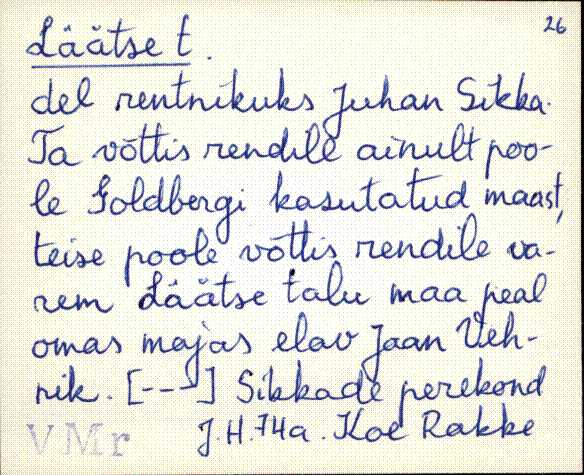 26
Läätse t.
del rentnikuks Juhan Sikka.
Ta võttis rendile ainult poo-
le Goldbergi kasutatud maast,
teise poole võttis rendile va-
rem Läätse talu maa peal
omas majas elav Jaan Veh-
nik. [---] Sikkade perekond
VMr J.H. 74a. Koe Rakke